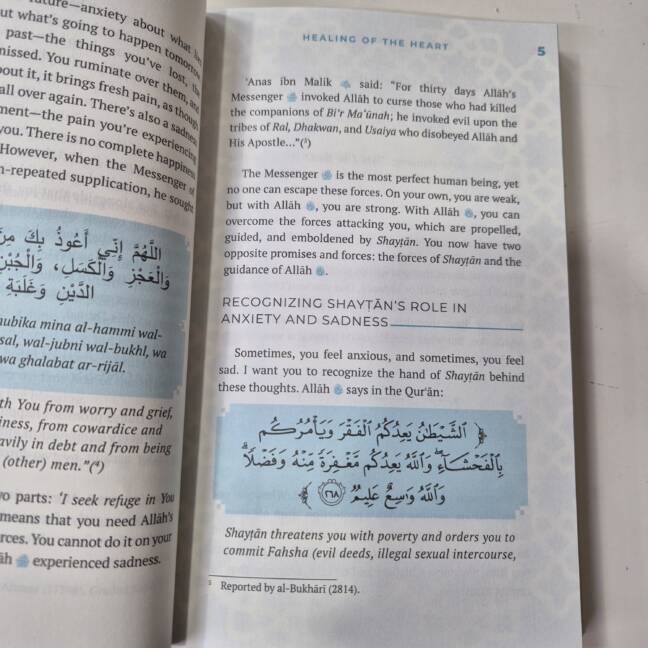 future—anxiety about what
but what's going to happen tomorrow
past—the things you've lost, the
missed. You ruminate over them, and
about it, it brings fresh pain, as though
all over again. There's also a sadness
you. There is no complete happiness
However, when the Messenger of
repeated supplication, he sought
اللَّهُمَّ إِنِّي أَعُوذُ بِكَ مِنَ
وَالْعَجْزِ وَالْكَسَلِ، وَالْجُبْنِ
الدَّيْنِ وَغَلَبَةِ
mina al-hammi wal-
wal-jubni wal-bukhl, wa
wa ghalabat ar-rijāl.
You from worry and grief,
from cowardice and
in debt and from being
(other) men."(⁴)
parts: 'I seek refuge in You
means that you need Allāh's
You cannot do it on your
experienced sadness.
HEALING OF THE HEART 5
'Anas ibn Malik said: "For thirty days Allāh's
Messenger ﷺ invoked Allāh to curse those who had killed
the companions of Bi'r Ma'ūnah; he invoked evil upon the
tribes of Ral, Dhakwan, and Usaiya who disobeyed Allāh and
His Apostle..."(⁵)
The Messenger ﷺ is the most perfect human being, yet
no one can escape these forces. On your own, you are weak,
but with Allāh, you are strong. With Allāh, you can
overcome the forces attacking you, which are propelled,
guided, and emboldened by Shayṭān. You now have two
opposite promises and forces: the forces of Shayṭān and the
guidance of Allāh.
RECOGNIZING SHAYTĀN'S ROLE IN
ANXIETY AND SADNESS
Sometimes, you feel anxious, and sometimes, you feel
sad. I want you to recognize the hand of Shayṭān behind
these thoughts. Allāh says in the Qur'ān:
﴿ ٱلشَّيْطَٰنُ يَعِدُكُمُ ٱلْفَقْرَ وَيَأْمُرُكُم
بِٱلْفَحْشَآءِ ۖ وَٱللَّهُ يَعِدُكُم مَّغْفِرَةً مِّنْهُ وَفَضْلًا ۗ
وَٱللَّهُ وَٰسِعٌ عَلِيمٌ ٢٦٨ ﴾
Shayṭān threatens you with poverty and orders you to
commit Fahsha (evil deeds, illegal sexual intercourse,
⁵ Reported by al-Bukhārī (2814).